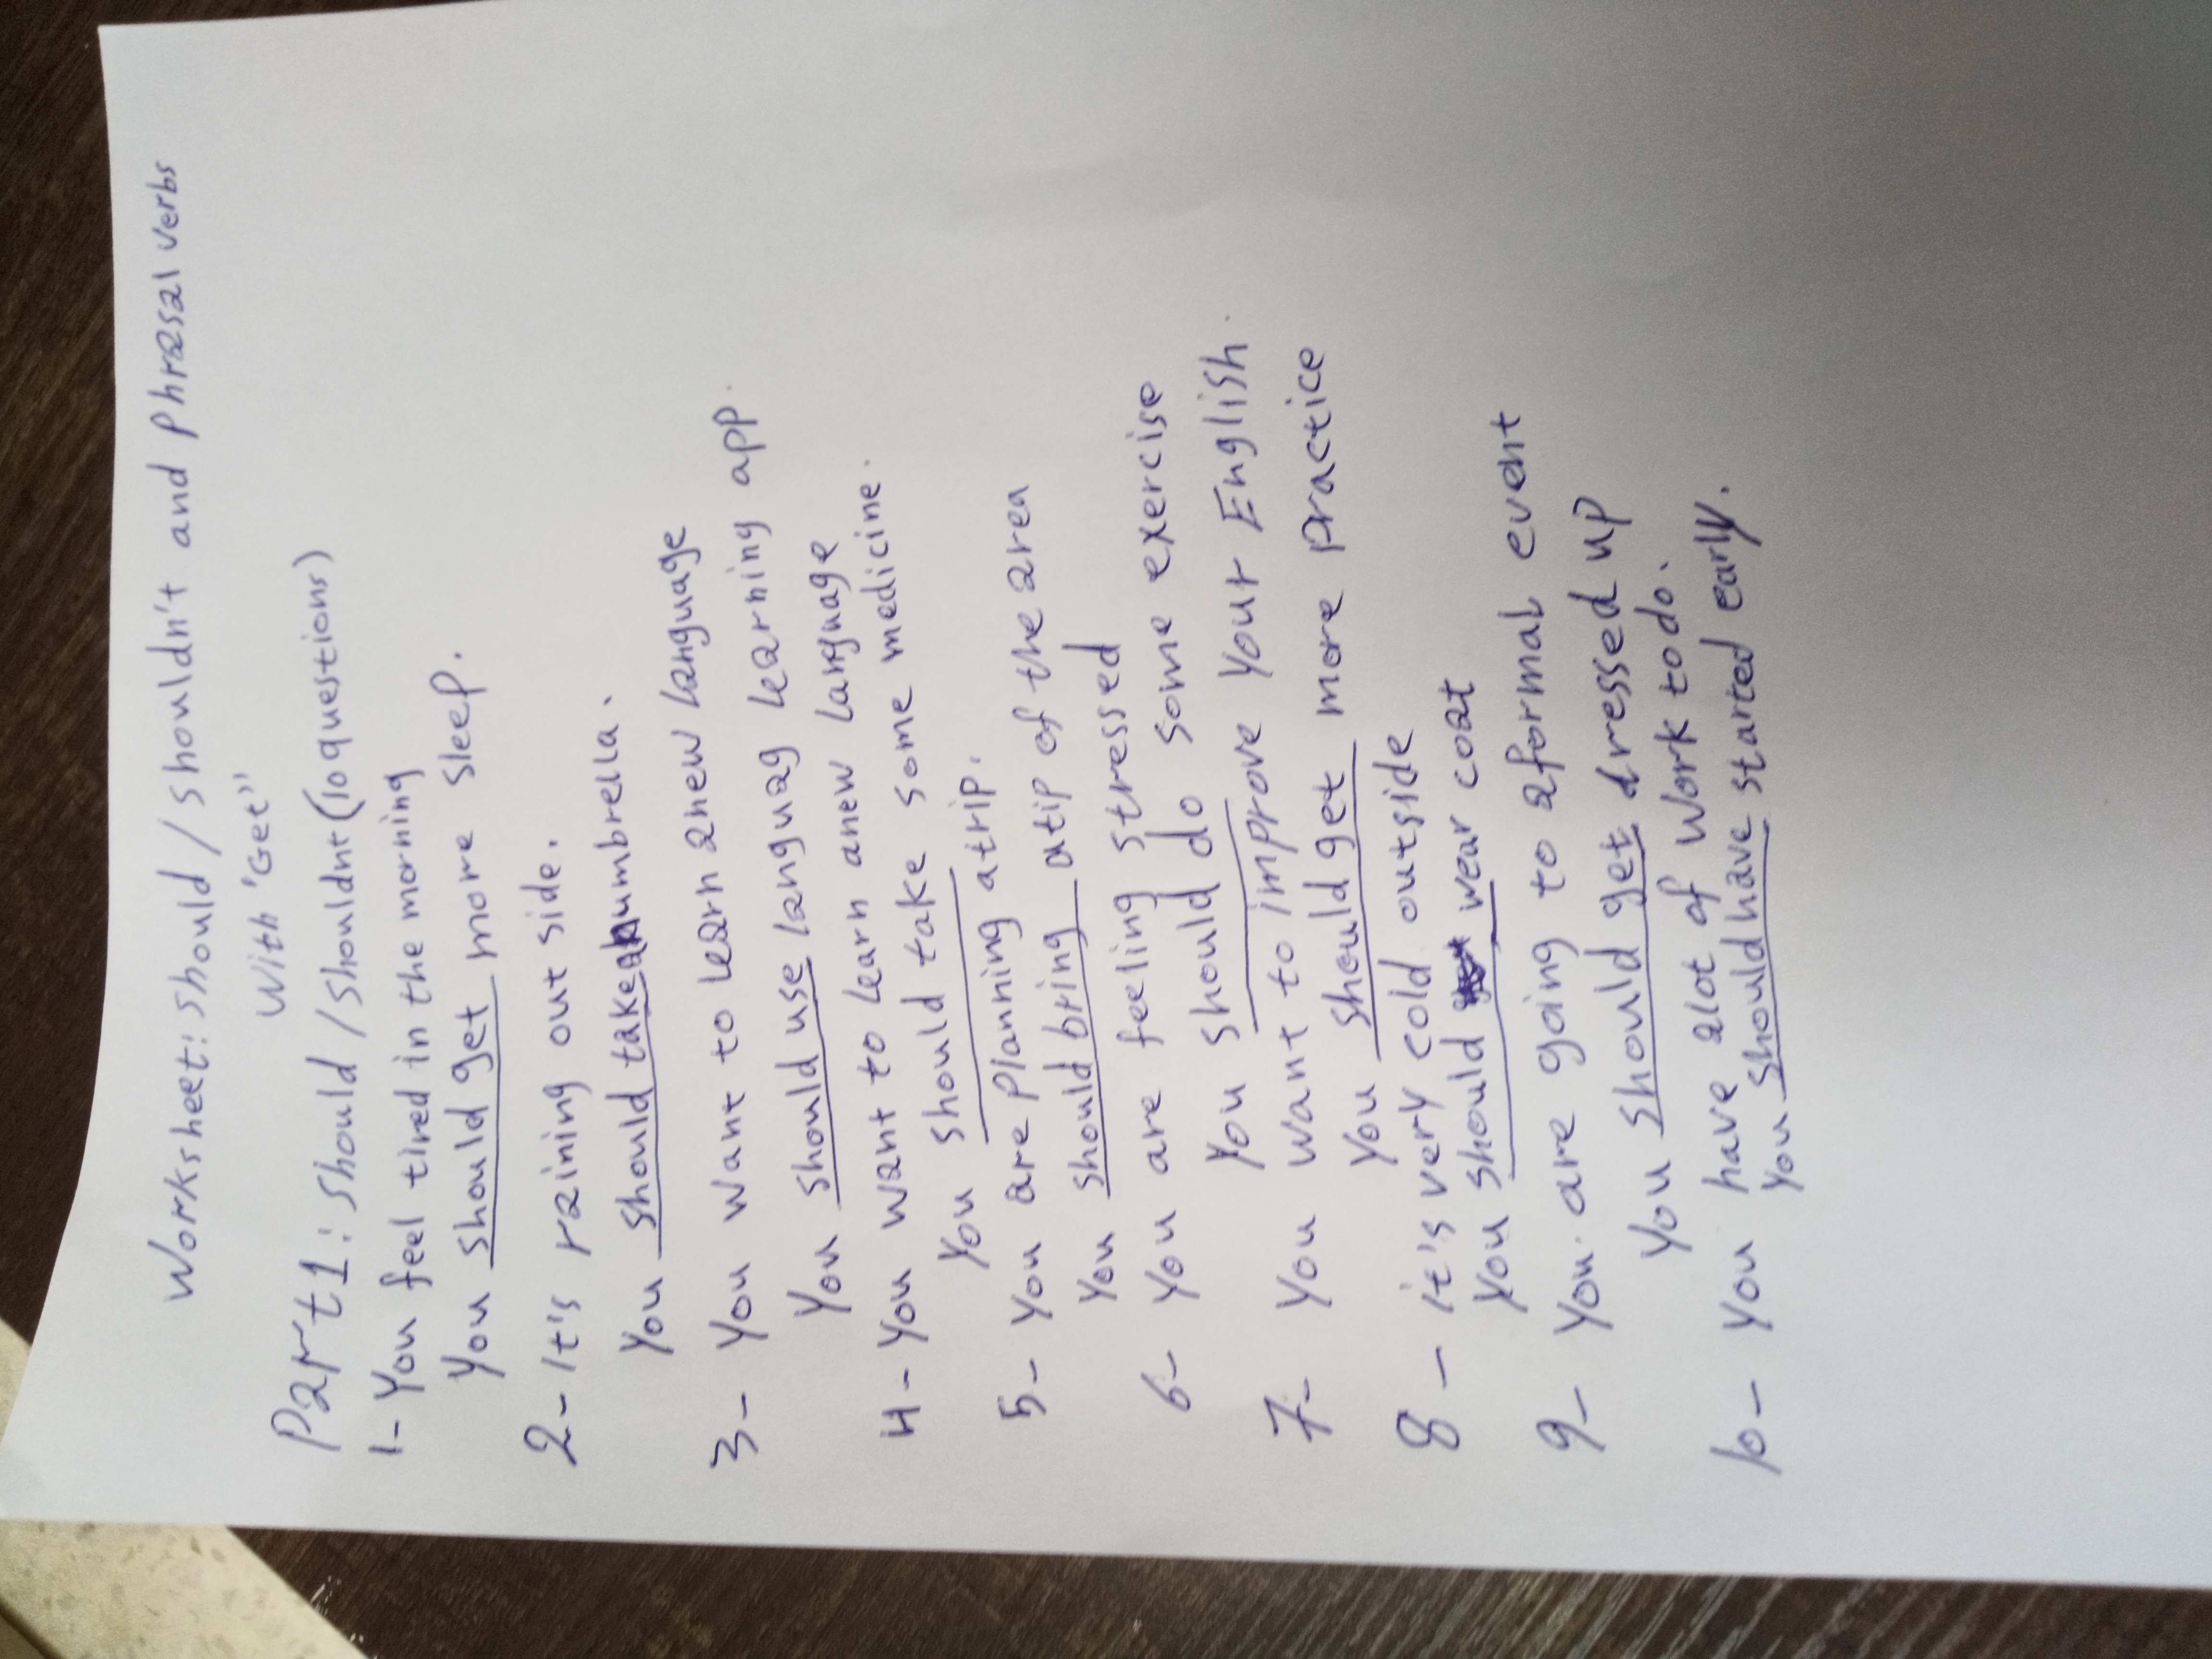 Worksheet: should / shouldn't and Phrasal verbs
With 'Get''
Part1: should / shouldnt (10 questions)
1- You feel tired in the morning
You should get more sleep.
2- It's raining out side.
You should take umbrella.
3- You want to learn anew language
You should use languag learning app.
4- You want to learn anew language
You should take some medicine.
5- You are planning atrip.
You should bring atip of the area
6- You are feeling stressed
You should do some exercise
7- You want to improve your English.
You should get more practice
8- it's very cold outside
you should wear coat
9- You are going to aformal event
You should get dressed up
10- You have alot of work todo.
You should have started early.